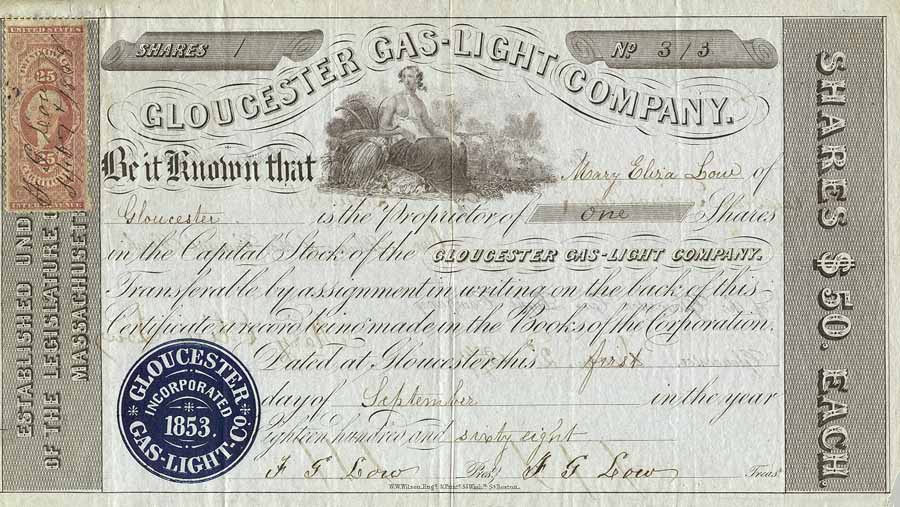 SHARES 1
No 313
GLOUCESTER GAS-LIGHT COMPANY.
Be it Known that Mary Eliza Low of
Gloucester is the Proprietor of One Shares
in the Capital Stock of the GLOUCESTER GAS-LIGHT COMPANY.
Transferable by assignment in writing on the back of this
Certificate a record being made in the Books of the Corporation.
Dated at Gloucester this first
day of September in the year
Eighteen hundred and sixty eight
F G Low Pres. F G Low Treas.
W.W.Wilson, Eng. & Print.
Boston.
ESTABLISHED UND
OF THE LEGISLATURE
MASSACHUSET
SHARES $50. EACH.
GLOUCESTER
INCORPORATED
1853.
GAS-LIGHT-Co.
UNITED STATES
25
25